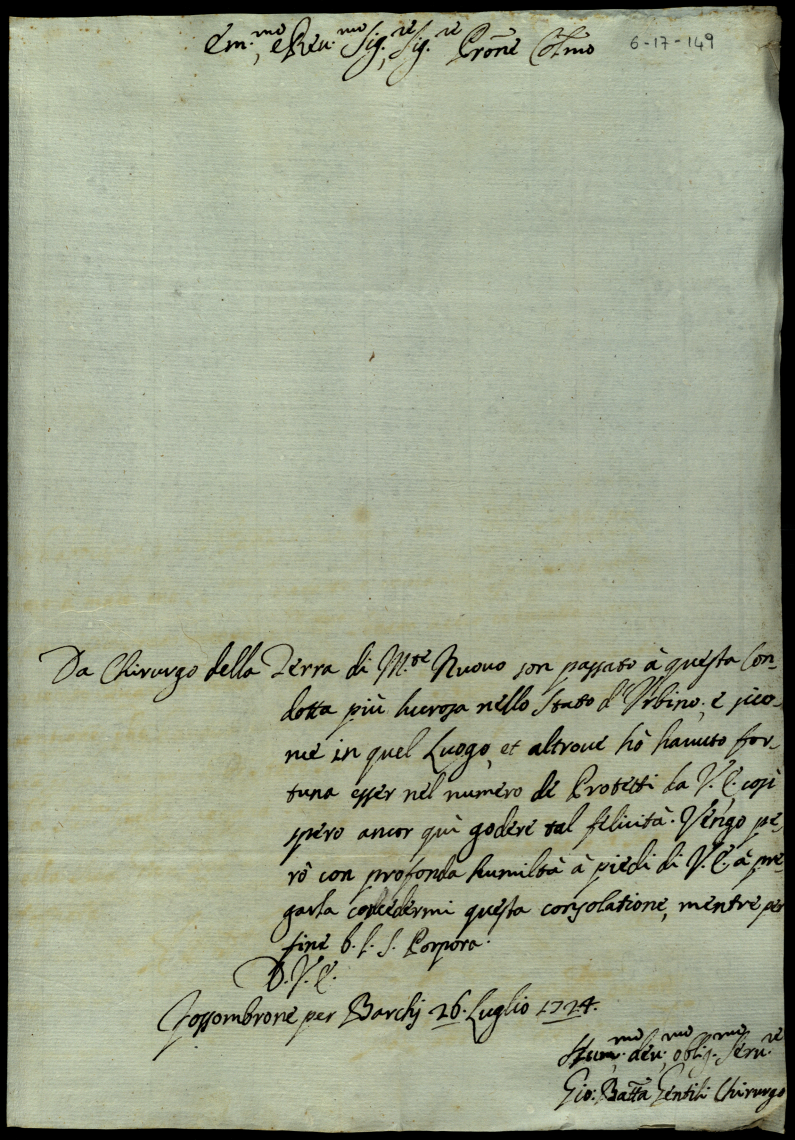 Em.mo, e Reu.mo Sig.re, Sig.re Prone Colmo
6-17-149
Da Chirurgo della Terra di M.te Nuouo son passato à questa Con-
dotta più lucrosa nello Stato d'Vrbino; e sico-
me in quel Luogo, et altroue hò hauuto for-
tuna esser nel numero de Protetti da V. E. così
spero ancor quì godere tal felicità. Vengo pe-
rò con profonda humiltà à piedi di V. E. à pre-
garla concedermi questa consolatione, mentre per
fine b. l. S. Porpora.
D. V. E.
Fossombrone per Barchj 26. Luglio 1724.
Hum.mo deu.mo oblig.mo Seru.re
Gio: Batta Gentili Chirurgo